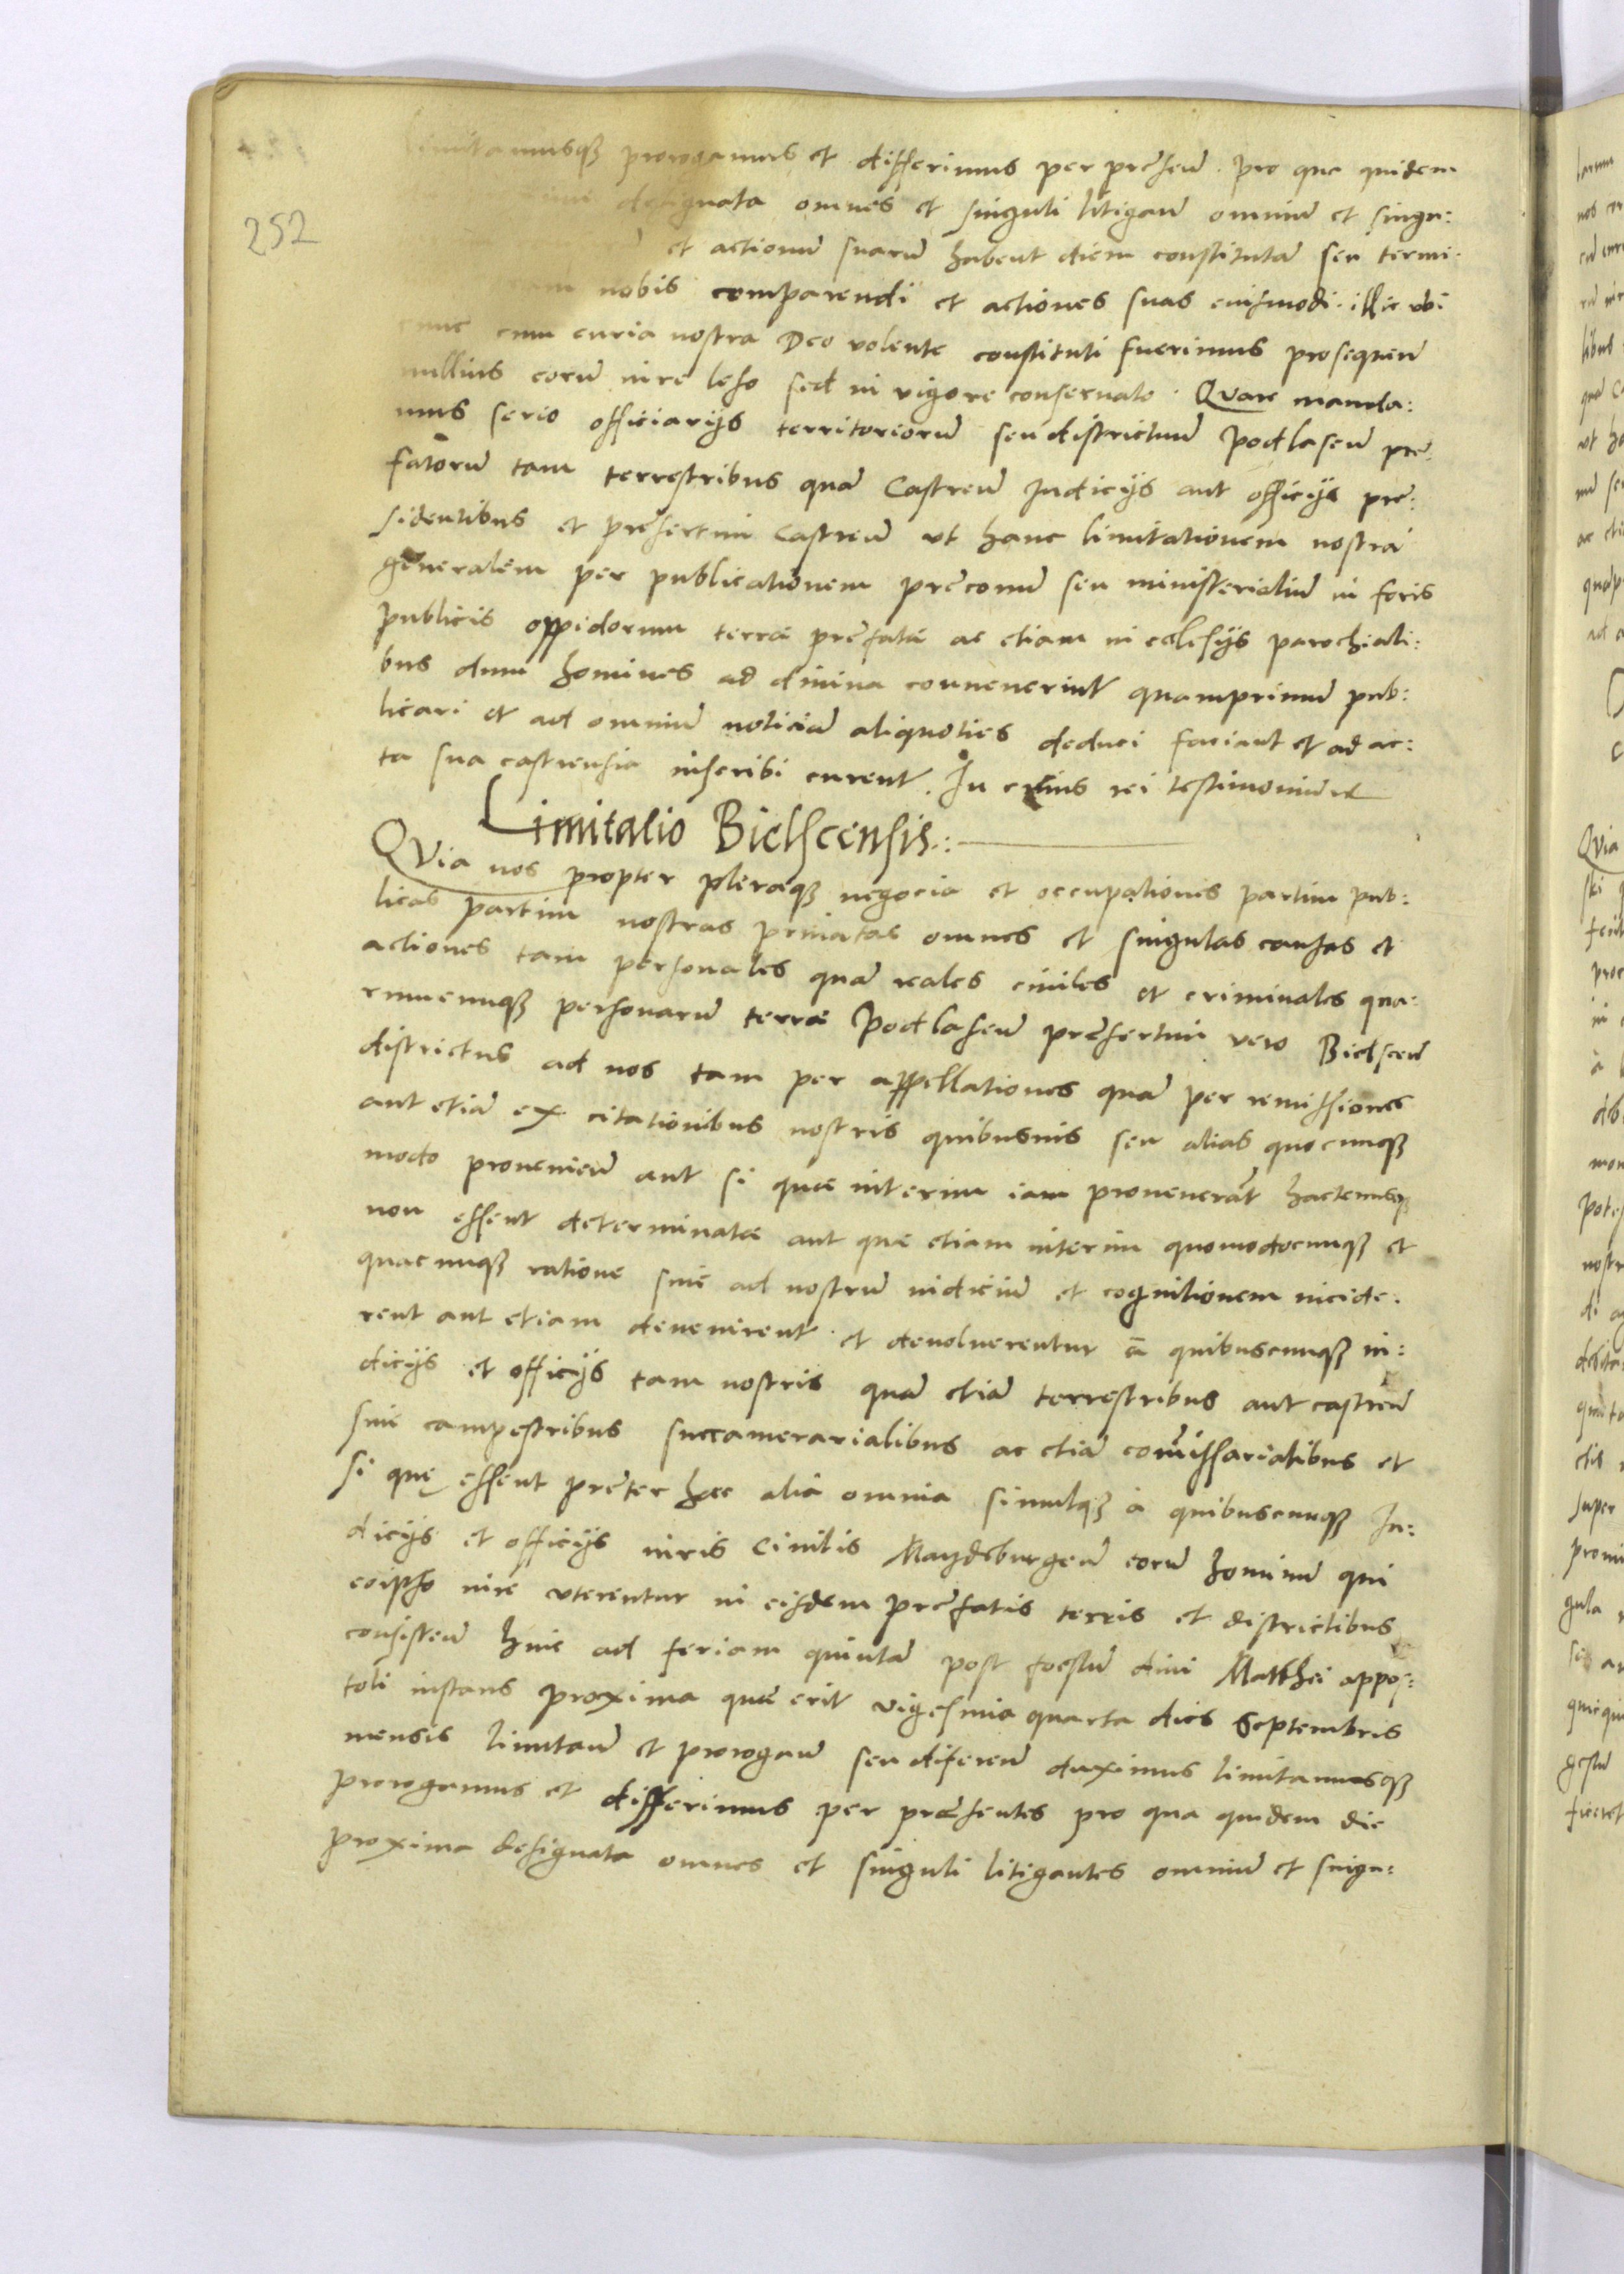 252
limitamusq₃ prorogamus et differimus per presen̄. pro qua quidem
designata omnes et singuli litigan̄ omniū et singu:
et actionū suarū habent diem constitutā seu termi.
nobis comparendi et actiones suas eiusmodi. illic vbi
cum curia nostra Deo volente constituti fuerimus prosequen̄
nullius eorū iure leso sed in vigore conseruato. Quare manda:
mus serio officiarijs territoriorū seu districtuū Podlasen̄ pre:
fatorū tam terrestribus quā Castren̄ Judicijs aut officijs pre:
sidentibus et presertim Castren̄ vt hanc limitationem nostrā
generalem per publicationem preconū seu ministerialiū in foris
publicis oppidorum terræ prefatæ ac etiam in ecclesijs parochiali:
bus dum homines ad diuina conuenerint quamprimū pub:
licari et ad omniū noticiā aliquoties deduci faciant et ad ac:
ta sua castrensia inscribi curent. In cuius rei testimoniū etc
Limitatio Bielscensis.:
QVia nos propter pleraq₃ negocia et occupationes partim pub:
licas partim nostras priuatas omnes et singulas causas et
actiones tam personales quā reales ciuiles et criminales qua:
rumcunq₃ personarū terræ Podlasen̄ presertim vero Bielscen̄
districtus ad nos tam per appellationes quā per remissiones
aut etiā ex citationibus nostris quibusuis seu alias quocunq₃
modo prouenien̄ aut si quæ interim iam prouenerāt hactenusq₃
non essent determinatæ aut quæ etiam interim quomodocunq₃ et
quacunq₃ ratione siue ad nostrū iudiciū et cognitionem incide.
rent aut etiam deuenirent et deuoluerentur à quibuscunq₃ iu:
dicijs et officijs tam nostris quā etiā terrestribus aut castren̄
siue campestribus succamerarialibus ac etiā com̄issarialibus et
si quę essent preter hæc alia omnia simulq₃ à quibuscunq₃ Ju:
dicijs et officijs iuris Ciuilis Maydeburgen̄ eorū hominū qui
eoipso iure vterentur in eisdem prefatis terris et districtibus
consisten̄ huic ad feriam quintā post foestū diui Matthei appos:
toli instans proxima quæ erit vigesima quarta dies Septembris
mensis limitan̄ et prorogan̄ seu diferen̄ duximus limitamusq₃
prorogamus et differimus per præsentes pro qua quidem die
proxima designata omnes et singuli litigantes omniū et singu: